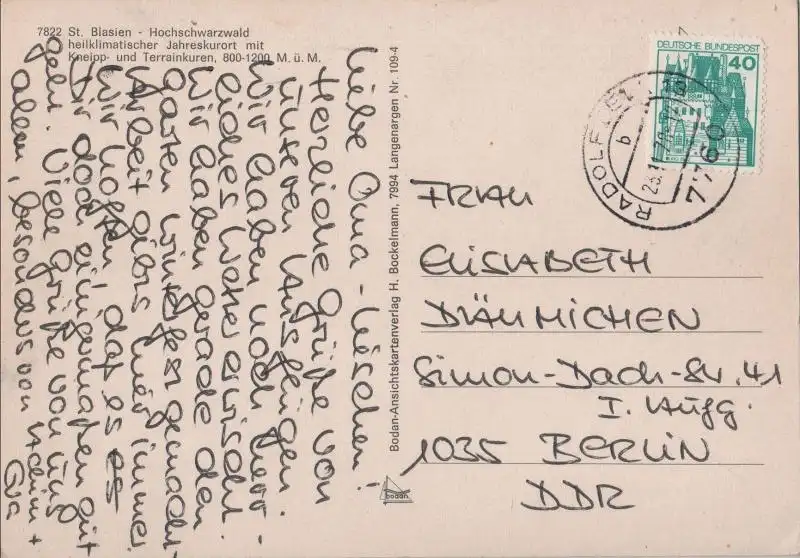 7822 St. Blasien - Hochschwarzwald
heilklimatischer Jahreskurort mit
Kneipp- und Terrainkuren, 800-1200 M. ü. M.
Liebe Oma-Lieschen!
Herzliche Grüße von
unseren Ausflügen.
Wir haben noch herr-
liches Wetter erwischt.
Wir haben gerade den
Garten winterfest gemacht.
Arbeit gibts hier immer.
Wir hoffen, daß es
Dir doch einigermaßen gut
geht. Viele Grüße von uns
allen, besonders von Achim +
Eva
Bodan-Ansichtskartenverlag H. Bockelmann, 7994 Langenargen Nr. 109-4
bodan
DEUTSCHE BUNDESPOST
40
b
7760
FRAU
ELISABETH
DÄUMICHEN
Simon-Dach-Str. 41
I. Aufg.
1035 BERLIN
DDR